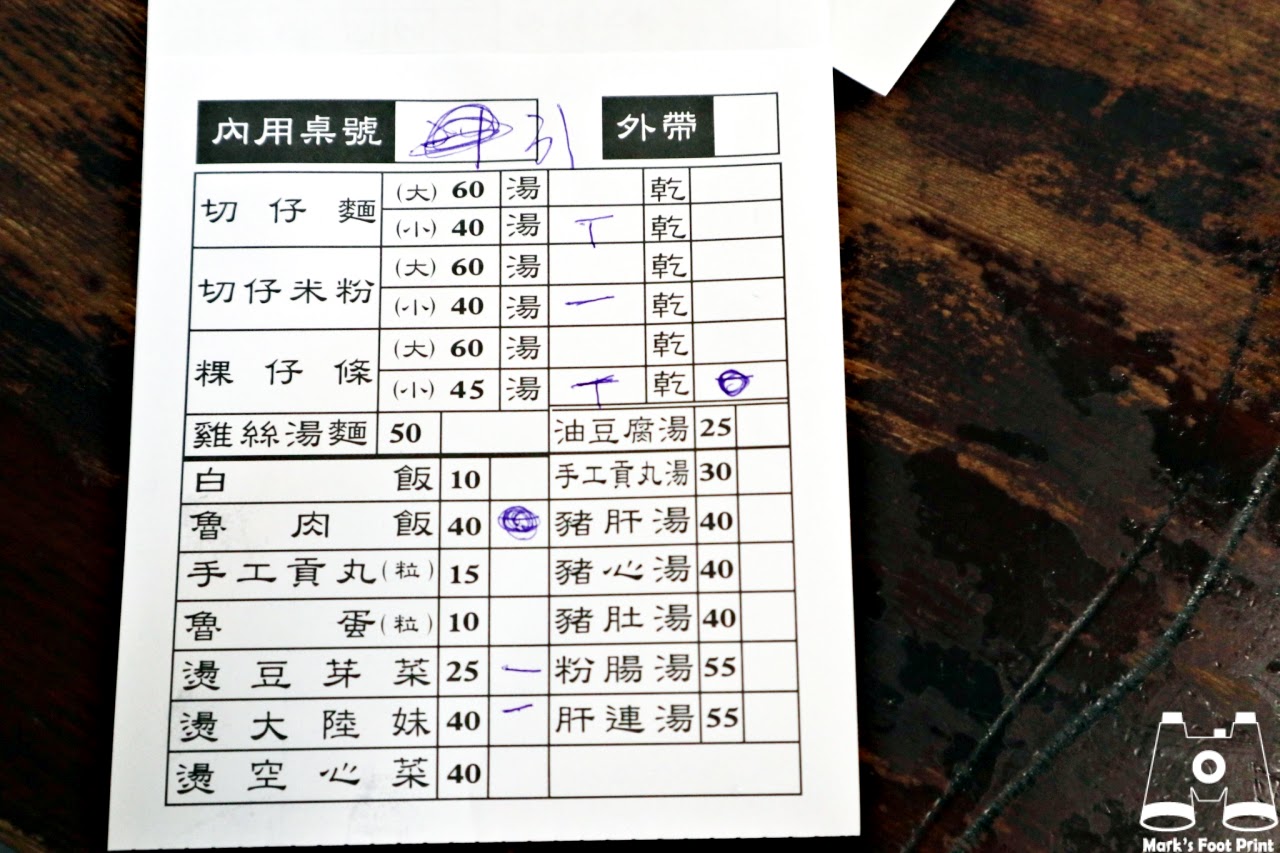 內用桌號 31 外帶
切仔麵 (大) 60 湯 乾
(小) 40 湯 T 乾
切仔米粉 (大) 60 湯 乾
(小) 40 湯 一 乾
粿仔條 (大) 60 湯 乾
(小) 45 湯 T 乾
雞絲湯麵 50 油豆腐湯 25
白飯 10 手工貢丸湯 30
魯肉飯 40 豬肝湯 40
手工貢丸(粒) 15 豬心湯 40
魯蛋(粒) 10 豬肚湯 40
燙豆芽菜 25 一 粉腸湯 55
燙大陸妹 40 一 肝連湯 55
燙空心菜 40
Mark's Foot Print